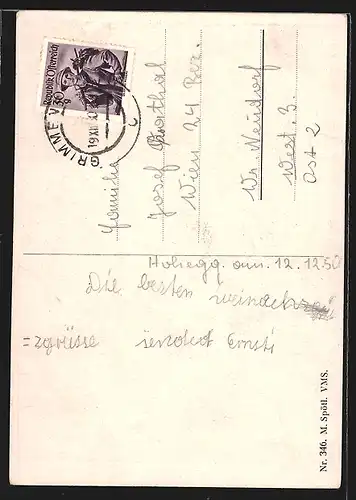 Republik Österreich
GRIMME
19.XII.50
Familie
Josef
Wien 24 Bez.
Wr Neudorf
West. 3.
Ost 2
Hohegg. am. 12. 12.50
Die besten weinach
=zgrüsse sendet Ernsti
Nr. 346. M. Spötl. VMS.